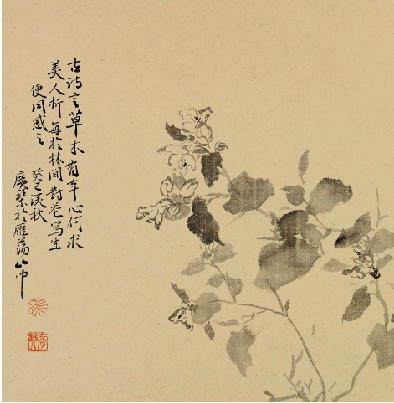 古诗言草木有本心何求
美人折每於林间对花写生
便同感之
癸巳秋
於雁蕩山中